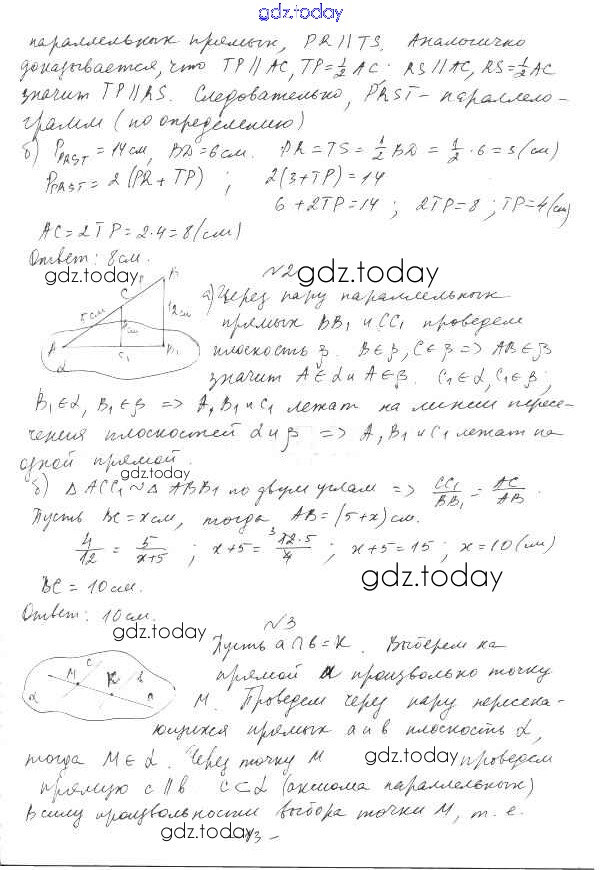 gdz.today
параллельных прямых, PR || TS. Аналогично
доказывается, что TP || AC, TP = 1/2 AC RS || AC, RS = 1/2 AC
значит TP || RS. Следовательно, PRST - параллело-
грамм (по определению)
б) P_PRST = 14 см, BD = 6 см. PR = TS = 1/2 BD = 1/2 · 6 = 3 (см)
P_PRST = 2 (PR + TP) ; 2(3+TP) = 14
6 + 2TP = 14 ; 2TP = 8 ; TP = 4 (см)
AC = 2TP = 2·4 = 8 (см)
Ответ: 8 см.
gdz.today
№2 gdz.today
B
C
5 см
12 см
A
α
C₁
B₁
а) Через пару параллельных
прямых BB₁ и CC₁ проведем
плоскость β. B ∈ β, C ∈ β => AB ∈ β
значит A ∈ α и A ∈ β. C₁ ∈ α, C₁ ∈ β;
B₁ ∈ α, B₁ ∈ β => A, B₁ и C₁ лежат на линии пересе-
чения плоскостей α и β => A, B₁ и C₁ лежат на
одной прямой.
gdz.today
б) Δ ACC₁ ~ Δ ABB₁ по двум углам => CC₁/BB₁ = AC/AB.
Пусть BC = x см, тогда AB = (5+x) см.
4/12 = 5/(x+5) ; x+5 = 12·5/4 ; x+5 = 15 ; x = 10 (см)
BC = 10 см.
gdz.today
Ответ: 10 см.
gdz.today
№3
M
c
K
b
α
a
Пусть a ∩ b = K. Выберем на
прямой a произвольно точку
M. Проведем через пару пересека-
ющихся прямых a и b плоскость α,
тогда M ∈ α. Через точку M gdz.today проведем
прямую c || b c ⊂ α (аксиома параллельных)
В силу произвольности выбора точки M, т. е.
gdz.today